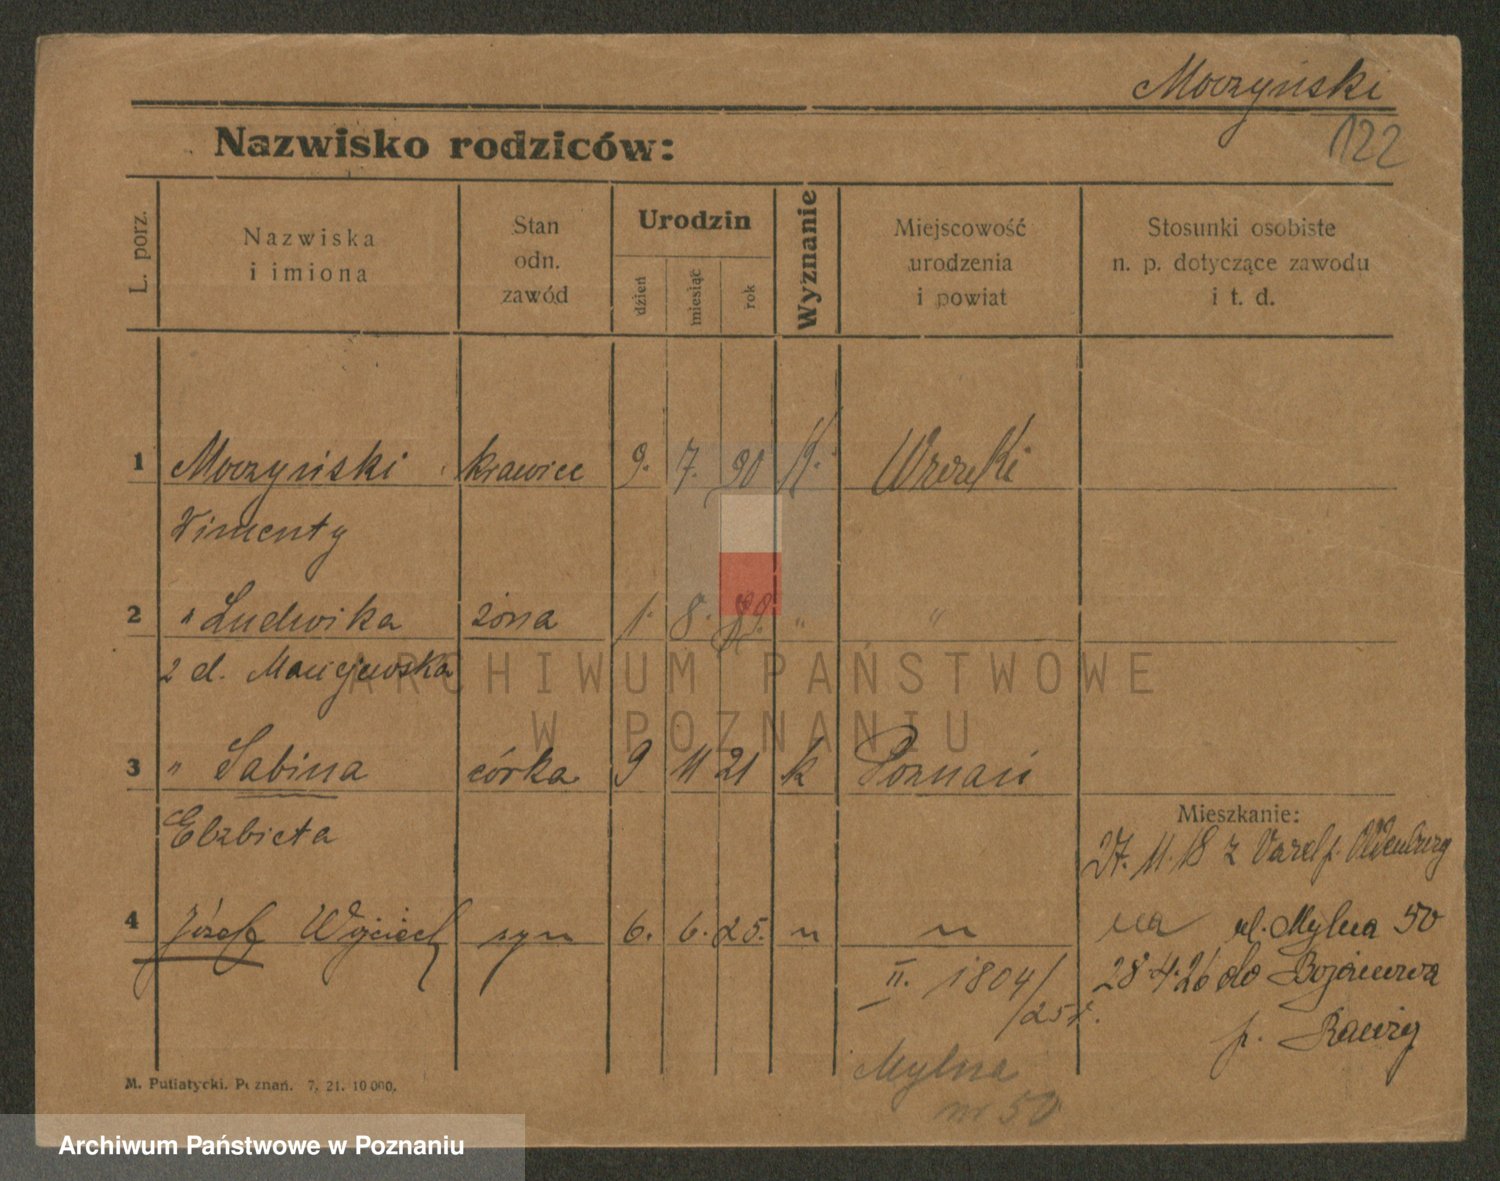 Moczyński
122
Nazwisko rodziców:
L. porz.
Nazwiska
i imiona
Stan
odn.
zawód
Urodzin
dzień
miesiąc
rok
Wyznanie
Miejscowość
urodzenia
i powiat
Stosunki osobiste
n. p. dotyczące zawodu
i t. d.
1 Moczyński krawiec 9. 7. 90 k.
Wincenty
2 " Ludwika żona 1. 8. " "
2 d. Maciejewska
ARCHIWUM PAŃSTWOWE
W POZNANIU
3 " Sabina córka 9 11 21 k Poznań
Elżbieta
Mieszkanie:
27. 11. 18 z Varel p. Oldenburg
4 Józef Wojciech syn 6. 6. 25. " "
na ul. Mylna 50
II. 1804/25r.
28.4.26 do Bojanowa
p. Rawicz
Mylna
nr 50
M. Putiatycki. Poznań. 7. 21. 10 000.
Archiwum Państwowe w Poznaniu